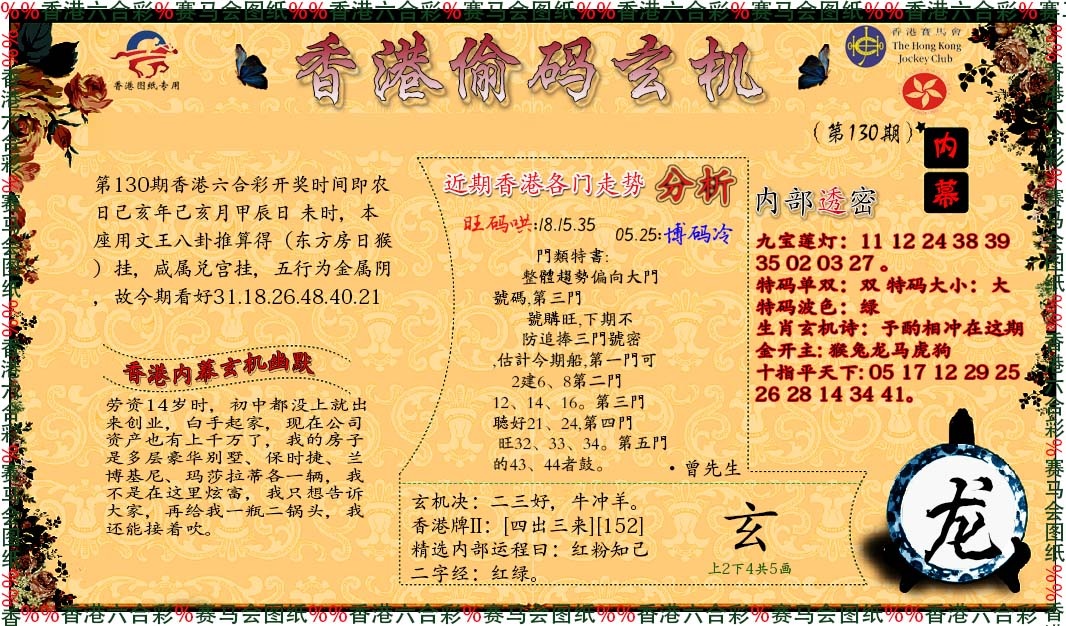 %%香港六合彩%赛马会图纸%%香港六合彩%赛马会图纸%%香港六合彩%赛马会图纸%%香港六合彩%赛
香港图纸专用
香港偷码玄机
香港賽馬會
The Hong Kong
Jockey Club
(第130期)
内幕
第130期香港六合彩开奖时间即农
日己亥年己亥月甲辰日 未时，本
座用文王八卦推算得（东方房日猴
）挂，咸属兑宫挂，五行为金属阴
，故今期看好31.18.26.48.40.21
香港内幕玄机幽默
劳资14岁时，初中都没上就出
来创业，白手起家，现在公司
资产也有上千万了，我的房子
是多层豪华别墅、保时捷、兰
博基尼、玛莎拉蒂各一辆，我
不是在这里炫富，我只想告诉
大家，再给我一瓶二锅头，我
还能接着吹。
近期香港各门走势 分析
旺码哄:18.15.35
05.25:博码冷
門類特書:
整體趨勢偏向大門
號碼,第三門
號購旺,下期不
防追捧三門號密
,估計今期船,第一門可
2建6、8第二門
12、14、16。第三門
聽好21、24,第四門
旺32、33、34。第五門
的43、44者鼓。
·曾先生
玄机决：二三好，牛冲羊。
香港牌II：[四出三来][152]
精选内部运程日：红粉知己
二字经：红绿。
玄
上2下4共5画
内部透密
九宝莲灯：11 12 24 38 39
35 02 03 27 。
特码单双：双 特码大小：大
特码波色：绿
生肖玄机诗：予酌相冲在这期
金开主: 猴兔龙马虎狗
十指平天下: 05 17 12 29 25
26 28 14 34 41。
龙
香%%香港六合彩%赛马会图纸%%香港六合彩%赛马会图纸%%香港六合彩%赛马会图纸%%香港六合彩%